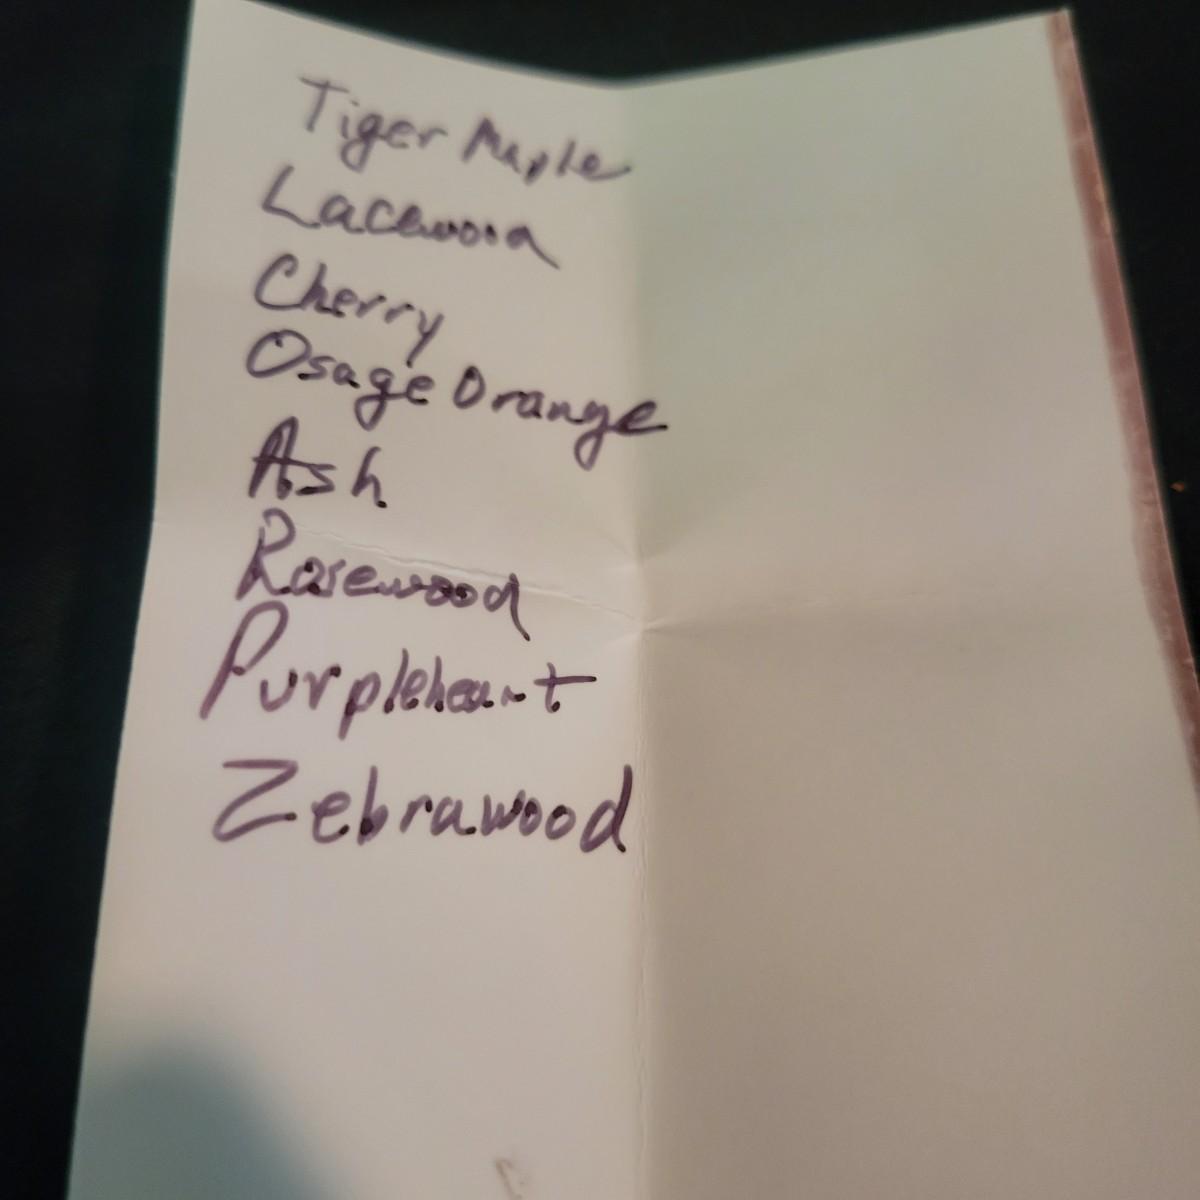 Tiger Maple
Lacewood
Cherry
Osage Orange
Ash
Rosewood
Purpleheart
Zebrawood